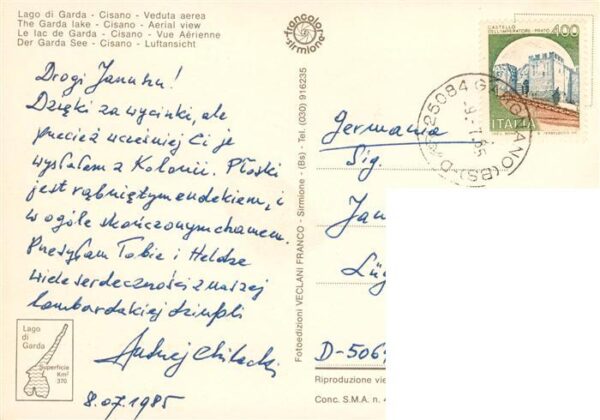 Lago di Garda - Cisano - Veduta aerea
The Garda lake - Cisano - Aerial view
Le lac de Garda - Cisano - Vue Aérienne
Der Garda See - Cisano - Luftansicht
francolor
sirmione
Drogi Januszu!
Dzięki za wycinki, ale
przecież wcześniej Ci je
wysłałem z Kolonii. Płoski
jest rąbniętym endekiem, i
w ogóle skończonym chamem.
Przesyłam Tobie i Heldze
wiele serdeczności z naszej
lombardzkiej dziupli
Andrzej
8.07.1985
Lago
di
Garda
Superficie
Km² 
370
Fotoedizioni VECLANI FRANCO - Sirmione - (Bs) - Tel. (030) 916235
CASTELLO
DELL'IMPERATORE - PRATO
400
ITALIA
25084 GARGNANO (BS)
Germania
Sig.
Jan
Lüg
D-506
Riproduzione vie
Conc. S.M.A. n. 4